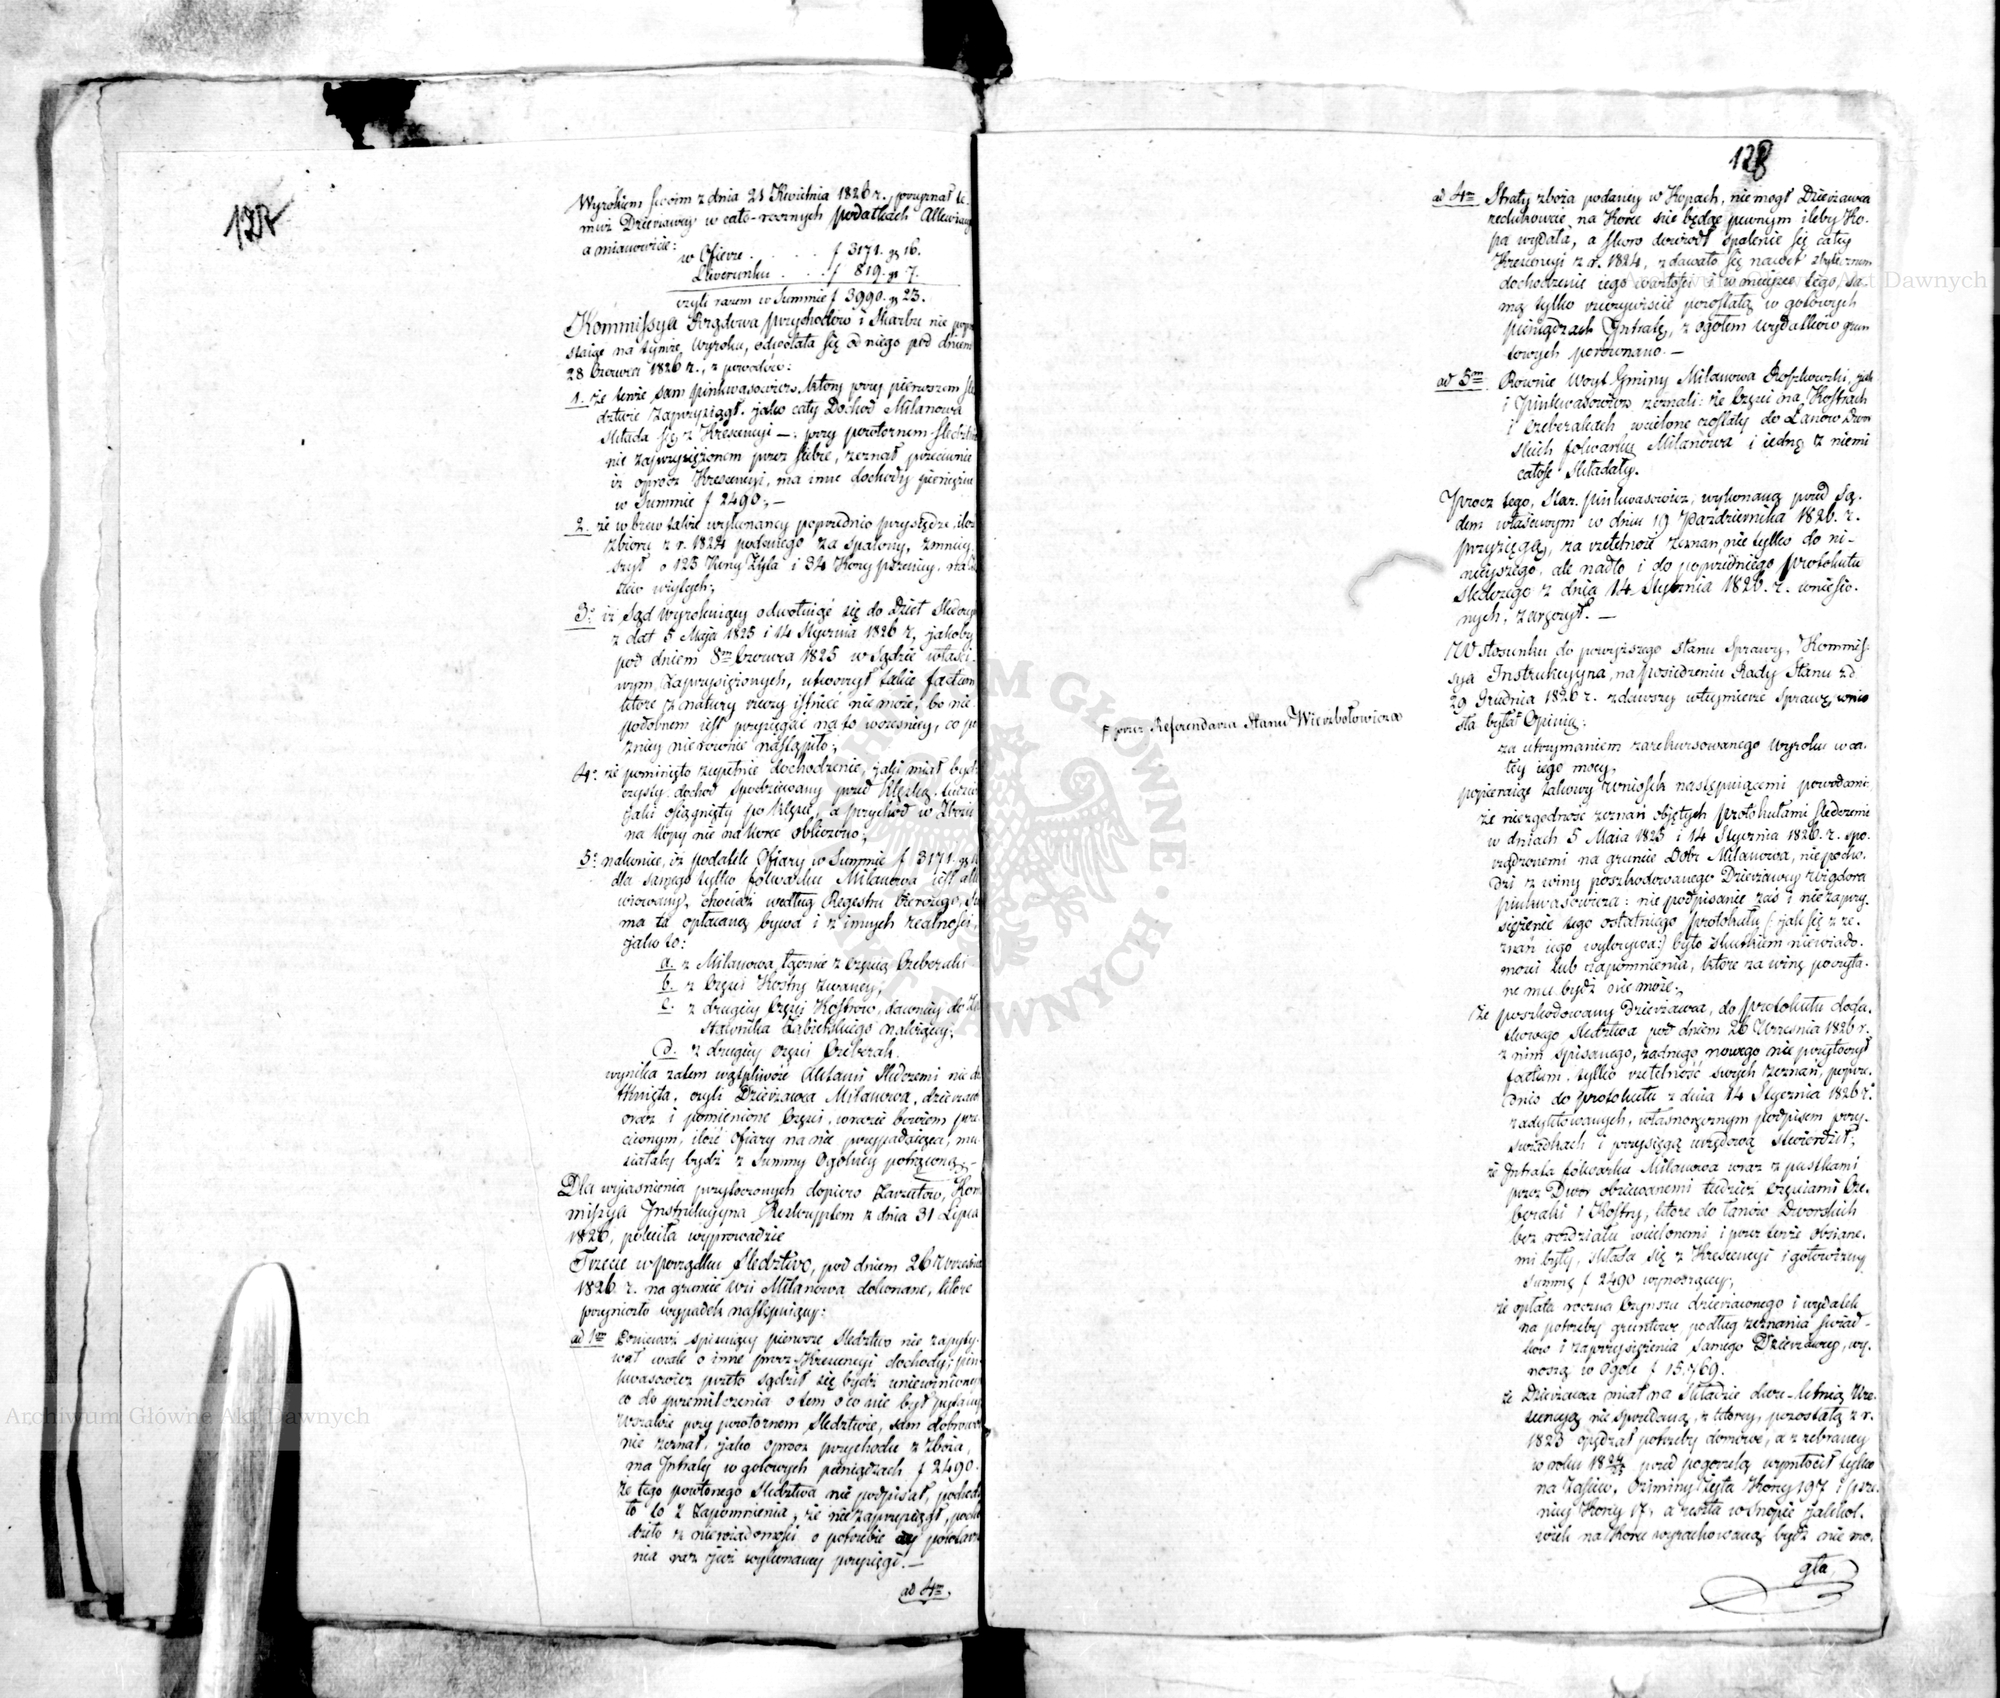 127
Wyrokiem swoim z dnia 21 Kwietnia 1826 r., przyznał te-
muż Dzierżawcy w cało-rocznych podatkach Allewiacyą
a mianowicie:
w Ofierze . . . . . f 3171. gr 16.
Liwerunku . . . f 819. gr 7.
czyli razem w Summie f 3990. gr 23.
Kommissya Rządowa Przychodów i Skarbu nie poprze-
staiąc na tymże Wyroku, odwołała się od niego pod dniem
28 Czerwca 1826 r., z powodów:
1. że tenże sam Pinkwasowicz, który przy pierwszem Śle-
dztwie zaprzysiągł, jako cały Dochod Milanowa
składa się z Krescencyi —: przy powtornem Śledztwie
nie zaprzysiężonem przez siebie, zeznał przeciwnie
iż oprócz Krescencyi, ma inne dochody pieniężne
w Summie f 2490; —
2. że wbrew także wykonaney poprzednio przysiędze, ilość
zbioru z r. 1824 podanego za spalony, zmniey-
szył o 123 Kopy Żyta i 34 Kopy pszenicy,
3° iż Sąd Wyrokuiący odwołuiąc się do Dzieł Śledczych
z dat 5 Maja 1825 i 14 Stycznia 1826 r., jakoby
pod dniem 8m Czerwca 1825 w Sądzie właści-
wym zaprzysiężonych, utworzył takie factum
które z natury rzeczy istnieć nie może, bo nie
podobnem iest przysięgać na to wcześniey, co pó-
zniey nierównie nastąpiło;
4° że pominięto zupełnie dochodzenie, jaki miał bydź
czysty dochod spodziewany przed klęską, tudzież
jaki osiągnięty po klęsce, a przychod w Zbożu
na kopy nie na korce obliczono;
5° nakoniec, iż podatek Ofiary w Summie f 3171. gr 16
dla samego tylko folwarku Milanowa iest alle-
wiowany, chociaż według Regestru Bierczego, Su-
ma ta opłacaną bywa i z innych realności,
jako to:
a. z Milanowa łącznie z Częścią Czeberaki
b. z Części Kostry zwaney;
c. z drugiey Części Kostrów, dawniey do
Stawnika Łabiętskiego należącey;
d. z drugiey części Czeberak.
wynika zatem wątpliwość Aktami Śledczemi nie do-
tknięta, czyli Dzierżawca Milanowa, dzierżawi
oraz i pomienione Części, w razie bowiem prze-
ciwnym, ilość ofiary na nie przypadaiąca, mu-
siałaby bydź z Summy Ogólney potrąconą. —
Dla wyiaśnienia przytoczonych dopiero Zarzutów, Kom-
missya Instrukcyjna Reskryptem z dnia 31 Lipca
1826, poleciła wyprowadzić
Trzecie w porządku Śledztwo, pod dniem 26 Września
1826 r. na gruncie wsi Milanowa dokonane, które
przyniosło wypadek następuiący:
ad 1m Ponieważ spisuiący pierwsze Śledztwo nie zapyty-
wał wcale o inne prócz Krescencyi dochody; Pin-
kwasowicz przeto sądził się bydź uniewinnionym
co do przemilczenia o tem o co nie był pytany
Wszakże przy powtornem Śledztwie, sam dobrowol-
nie zeznał, jako oprócz przychodu z Zboża,
ma Intraty w gotowych pieniądzach f 2490.
Że tego powtornego Śledztwa nie podpisał, pochodzi
to z Zapomnienia, że nie zaprzysiągł, pocho-
dziło z niewiadomości o potrzebie powtarza-
nia raz już wykonaney przysięgi. —
ad 4m.
128
ad 4m Straty zboża podaney w Kopach, nie mogł Dzierżawca
redukować na Korce nie będąc pewnym ileby Ko-
pa wydała, a skoro dowiodł spalenie się całey
Krescencyi z r. 1824, zdawało się nawet zbytecznem
dochodzenie iego wartości i w mieysce tego, sa-
mą tylko rzeczywiście pozostałą w gotowych
pieniądzach Intratę, z ogółem wydatków grun-
towych porównano. —
ad 5m Równie Woyt Gminy Milanowa Roszkowski, jak
i Pinkwasowicz zeznali: że Części na Kostrach
i Czeberakach wcielone zostały do Łanów Dwor-
skich folwarku Milanowa i iedną z niemi
całość składały.
Prócz tego, Star. Pinkwasowicz, wykonaną przed Są-
dem właściwym w dniu 19 Października 1826. r.
przysięgą, za rzetelność zeznań, nie tylko do ni-
nieyszego, ale nadto i do poprzedniego Protokułu
Śledczego z dnia 14 Stycznia 1826. r. wniesio-
nych, zaręczył. —
W stosunku do powyższego stanu Sprawy, Kommis-
sya Instrukcyjna, na posiedzeniu Rady Stanu z d.
29 Grudnia 1826 r. zdawszy w tey mierze Sprawę, wnio-
sła była Opinią:
F przez Referendarza Stanu Wierzbołowicza
za utrzymaniem zarekursowanego Wyroku w ca-
łey iego mocy,
popieraiąc takowy wniosek następuiącemi powodami:
że niezgodność zeznań objętych Protokułami Śledczemi
w dniach 5 Maia 1825 i 14 Stycznia 1826. r. spo-
rządzonemi na gruncie Dobr Milanowa, nie pocho-
dzi z winy poszkodowanego Dzierżawcy Wigdora
Pinkwasowicza: nie podpisanie zaś i nie zaprzy-
siężenie tego ostatniego Protokułu (: jak się z ze-
znań iego wykrywa:) było skutkiem niewiado-
mości lub zapomnienia, które za winę poczyta-
ne mu bydź nie może;
że poszkodowany Dzierżawca, do Protokułu doda-
tkowego Śledztwa pod dniem 26 Września 1826 r.
z nim spisanego, żadnego nowego nie przytoczył
factum, tylko rzetelność swych zeznań, poprze-
dnio do Protokułu z dnia 14 Stycznia 1826 r.
zadyktowanych, własnoręcznym podpisem przy
świadkach i przysięgą urzędową stwierdził;
że Intrata folwarku Milanowa wraz z pustkami
przez Dwór obsiewanemi tudzież częściami Cze-
beraki i Kostry, które do łanów Dworskich
bez rozdziału wcielonemi i przez tenże obsiane-
mi były, składa się z Krescencyi i gotowizny
summę f 2490 wynoszącey;
że opłata roczna Czynszu dzierżawnego i wydatek
na potrzeby gruntowe podług zeznania świad-
ków i zaprzysiężenia samego Dzierżawcy, wy-
noszą w Ogóle f 15,769.
że Dzierżawca miał na składzie dwu-letnią Kre-
scencyą nie sprzedaną, z którey, pozostałą z r.
1823 opędzał potrzeby domowe, a z zebraney
w roku 1824 przed pogorzelą wymłocił tylko
na Zasiew, Oziminy Żyta Kopy 197 i psze-
nicy Kopy 17, a reszta w snopie jakkol-
wiek na Korce wyrachowaną bydź nie mo-
gła,
Archiwum Główne Akt Dawnych
Archiwum Główne Akt Dawnych
ARCHIWUM GŁÓWNE AKT DAWNYCH